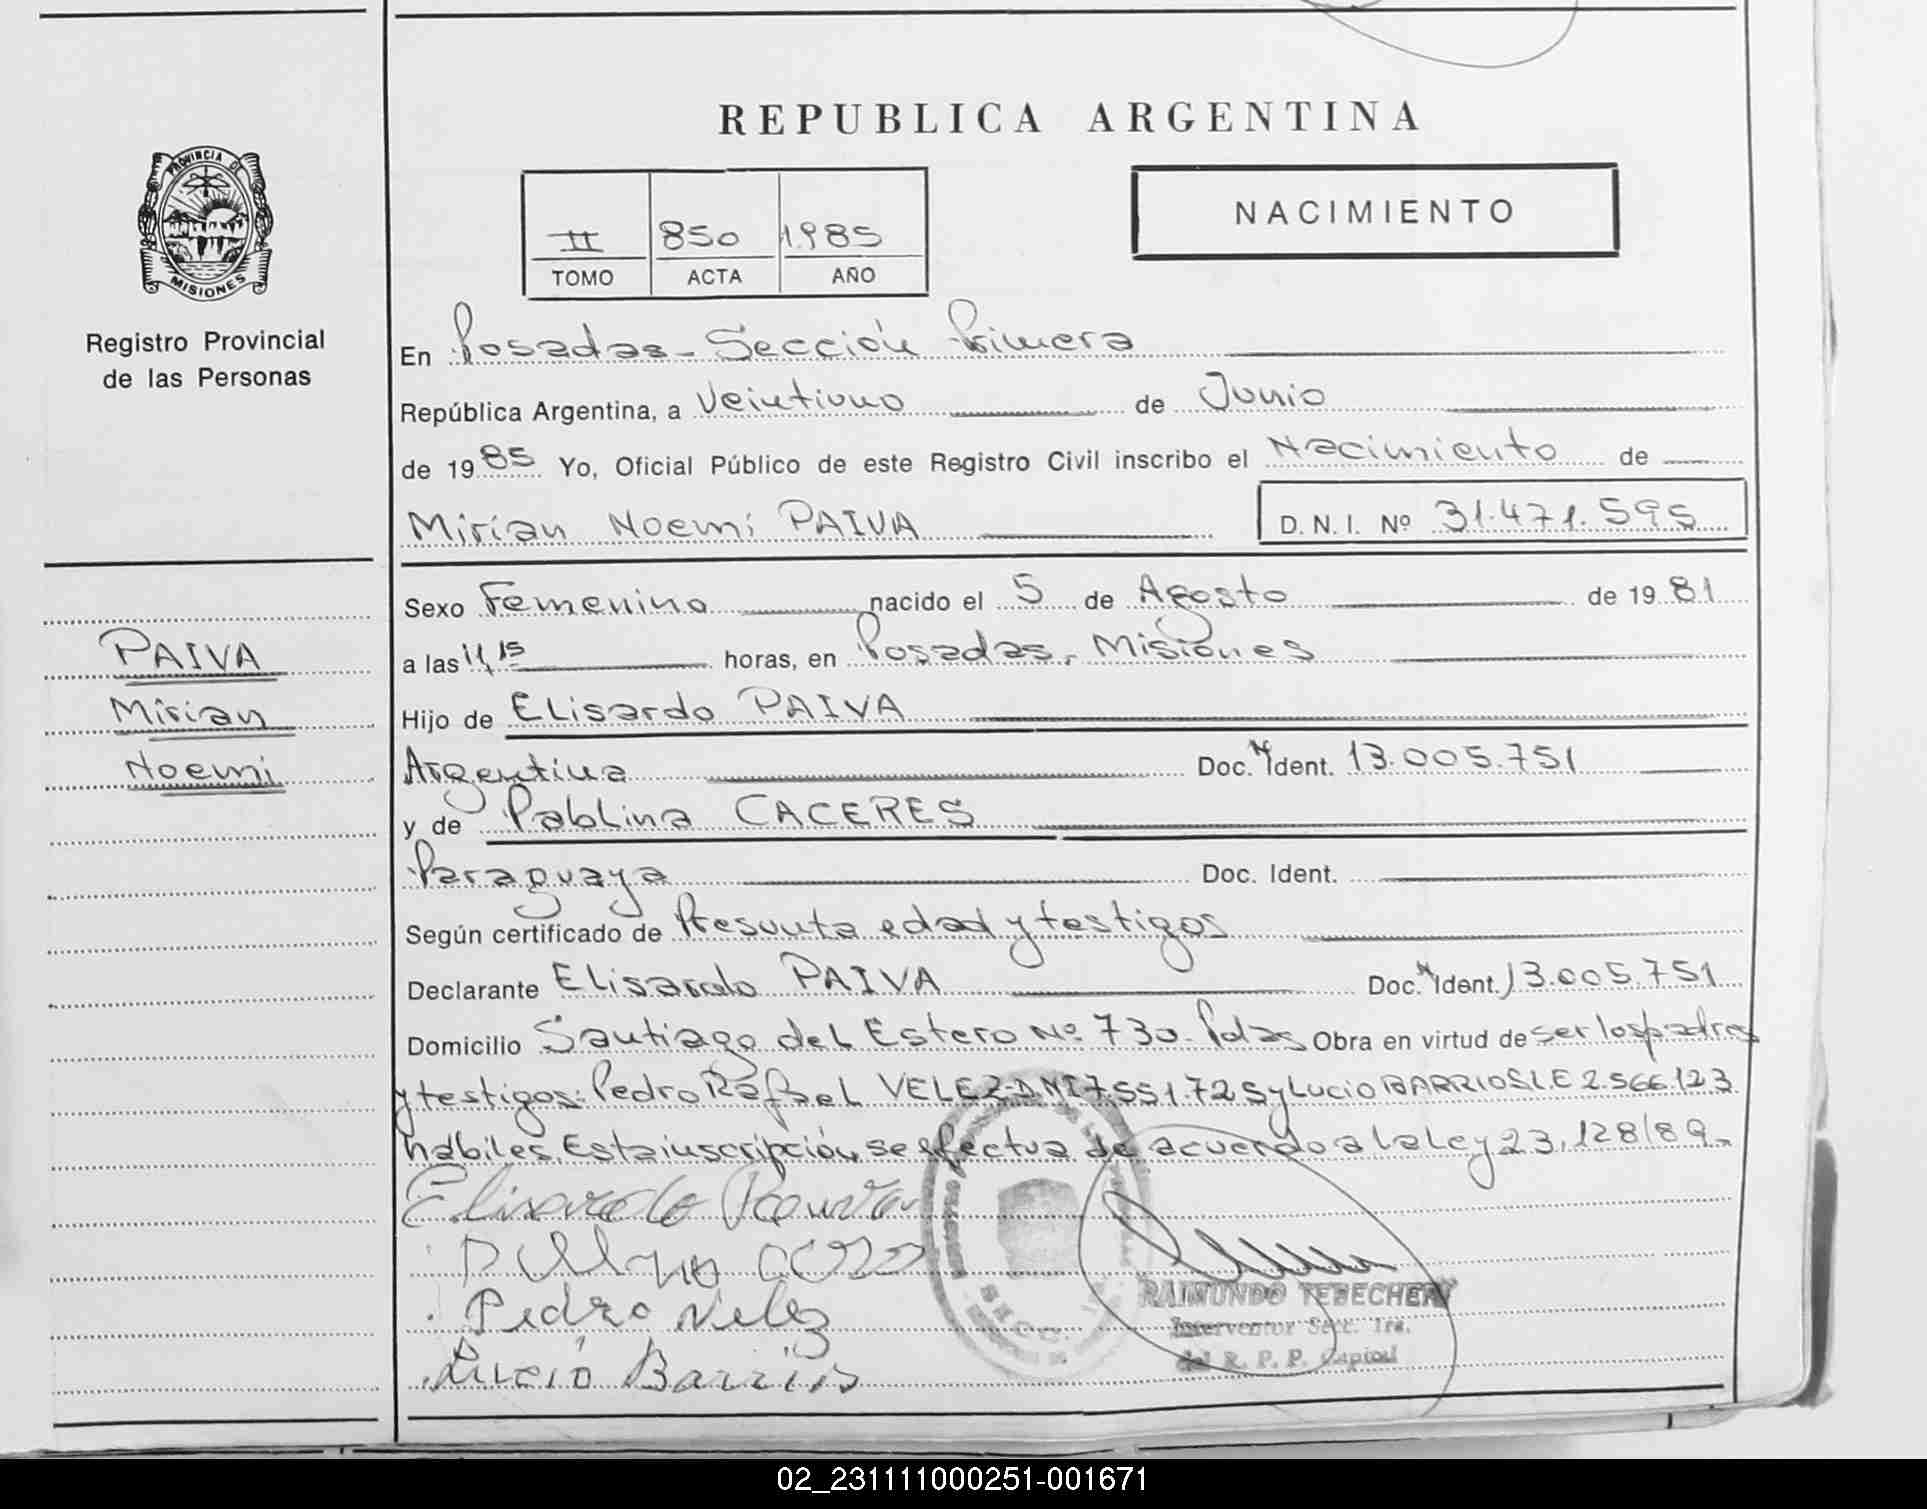 REPUBLICA ARGENTINA
PROVINCIA DE
MISIONES
Registro Provincial
de las Personas
II 850 1.985
TOMO ACTA AÑO
NACIMIENTO
En Posadas - Sección Primera
República Argentina, a Veintiuno de Junio
de 1985 Yo, Oficial Público de este Registro Civil inscribo el Nacimiento de
Mirian Noemi PAIVA D.N.I. Nº 31.471.595
PAIVA
Mirian
Noemi
Sexo Femenino nacido el 5 de Agosto de 1981
a las 11,15 horas, en Posadas, Misiones
Hijo de Elisardo PAIVA
Argentina Doc. N Ident. 13.005.751
y de Pablina CACERES
Paraguaya Doc. Ident.
Según certificado de Presunta edad y testigos
Declarante Elisardo PAIVA Doc. N Ident. 13.005.751
Domicilio Santiago del Estero Nº 730 - Pdas Obra en virtud de ser los padres
y testigos: Pedro Rafael VELEZ D.N.I 7.551.725 y Lucio BARRIOS L.E 2.566.123
hábiles. Esta inscripción se efectua de acuerdo a la Ley 23.128/89-
Elisardo Paiva
Pedro Velez
Lucio Barrios
RAIMUNDO TEBECHERY
Interventor Secc. 1ra.
del R. P. P. Capital
02_231111000251-001671